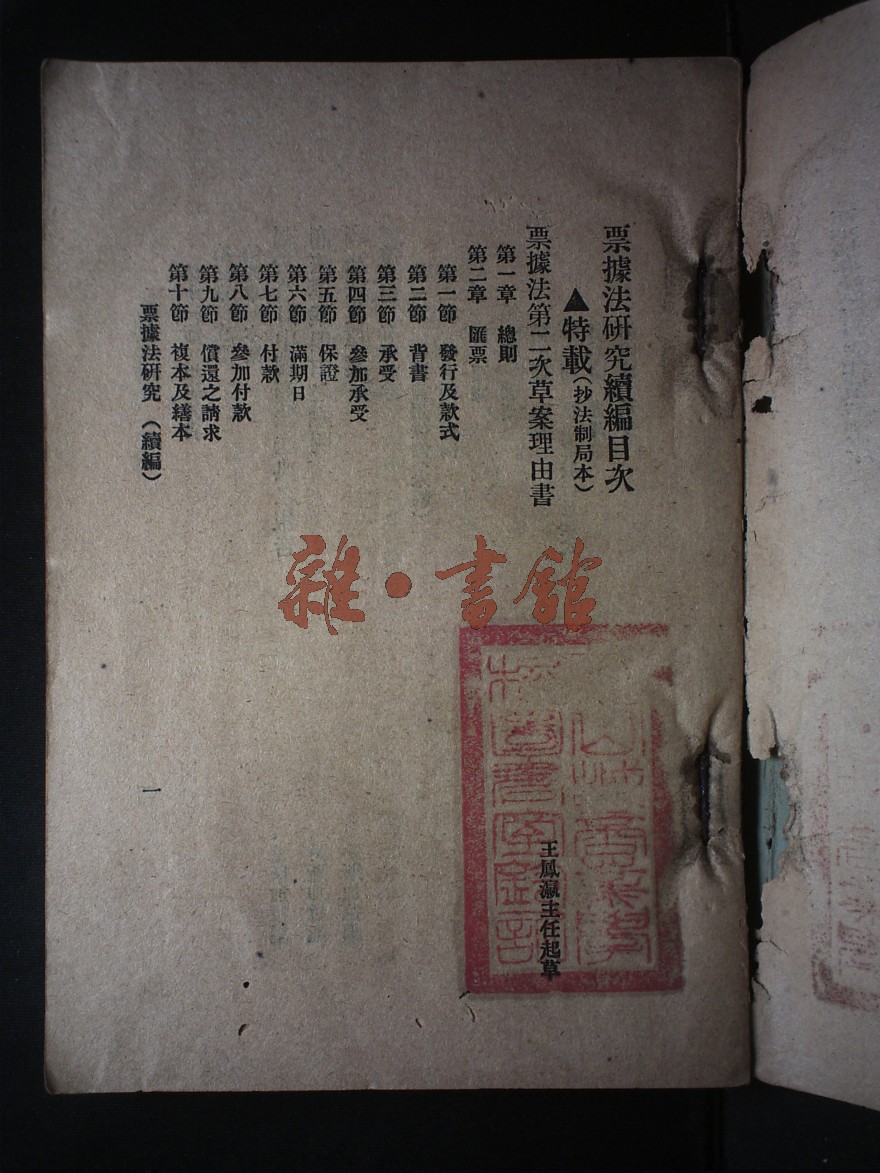 票據法研究續編目次
▲特載(抄法制局本)
票據法第二次草案理由書
王鳳瀛主任起草
第一章 總則
第二章 匯票
第一節 發行及款式
第二節 背書
第三節 承受
第四節 參加承受
第五節 保證
第六節 滿期日
第七節 付款
第八節 參加付款
第九節 償還之請求
第十節 複本及繕本
票據法研究 (續編)
一
雜·書館